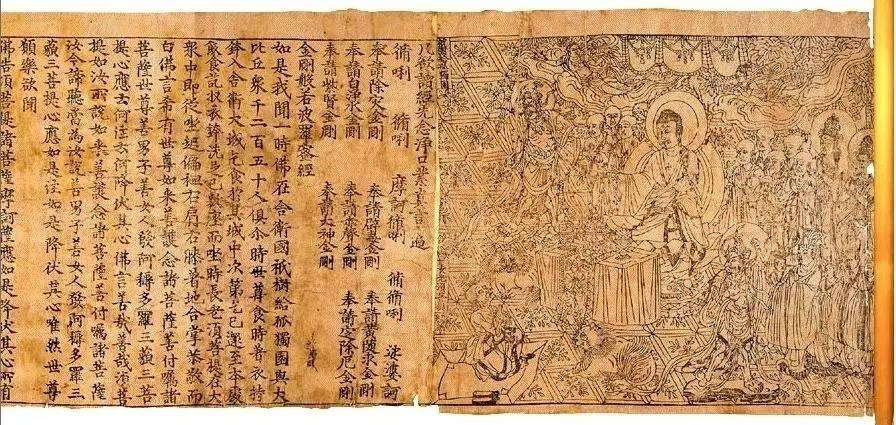 凡欲讀經先念淨口業真言一遍
脩唎 脩唎 摩訶脩唎 脩脩唎 娑婆訶
奉請除灾金剛 奉請辟毒金剛 奉請黃隨求金剛
奉請白淨水金剛 奉請赤聲金剛 奉請定除厄金剛
奉請紫賢金剛 奉請大神金剛
金剛般若波羅蜜經
如是我聞一時佛在舍衛國祇樹給孤獨園與大
比丘衆千二百五十人俱尒時世尊食時著衣持
鉢入舍衛大城乞食於其城中次第乞已還至本處
飯食訖收衣鉢洗足已敷座而坐時長老須菩提在大
衆中即從座起偏袒右肩右膝著地合掌恭敬而
白佛言希有世尊如來善護念諸菩薩善付囑諸
菩薩世尊善男子善女人發阿耨多羅三藐三菩
提心應云何住云何降伏其心佛言善哉善哉須菩
提如汝所說如來善護念諸菩薩善付囑諸菩薩
汝今諦聽當為汝說善男子善女人發阿耨多羅三
藐三菩提心應如是住如是降伏其心唯然世尊
願樂欲聞
佛告須菩提諸菩薩摩訶薩應如是降伏其心所有